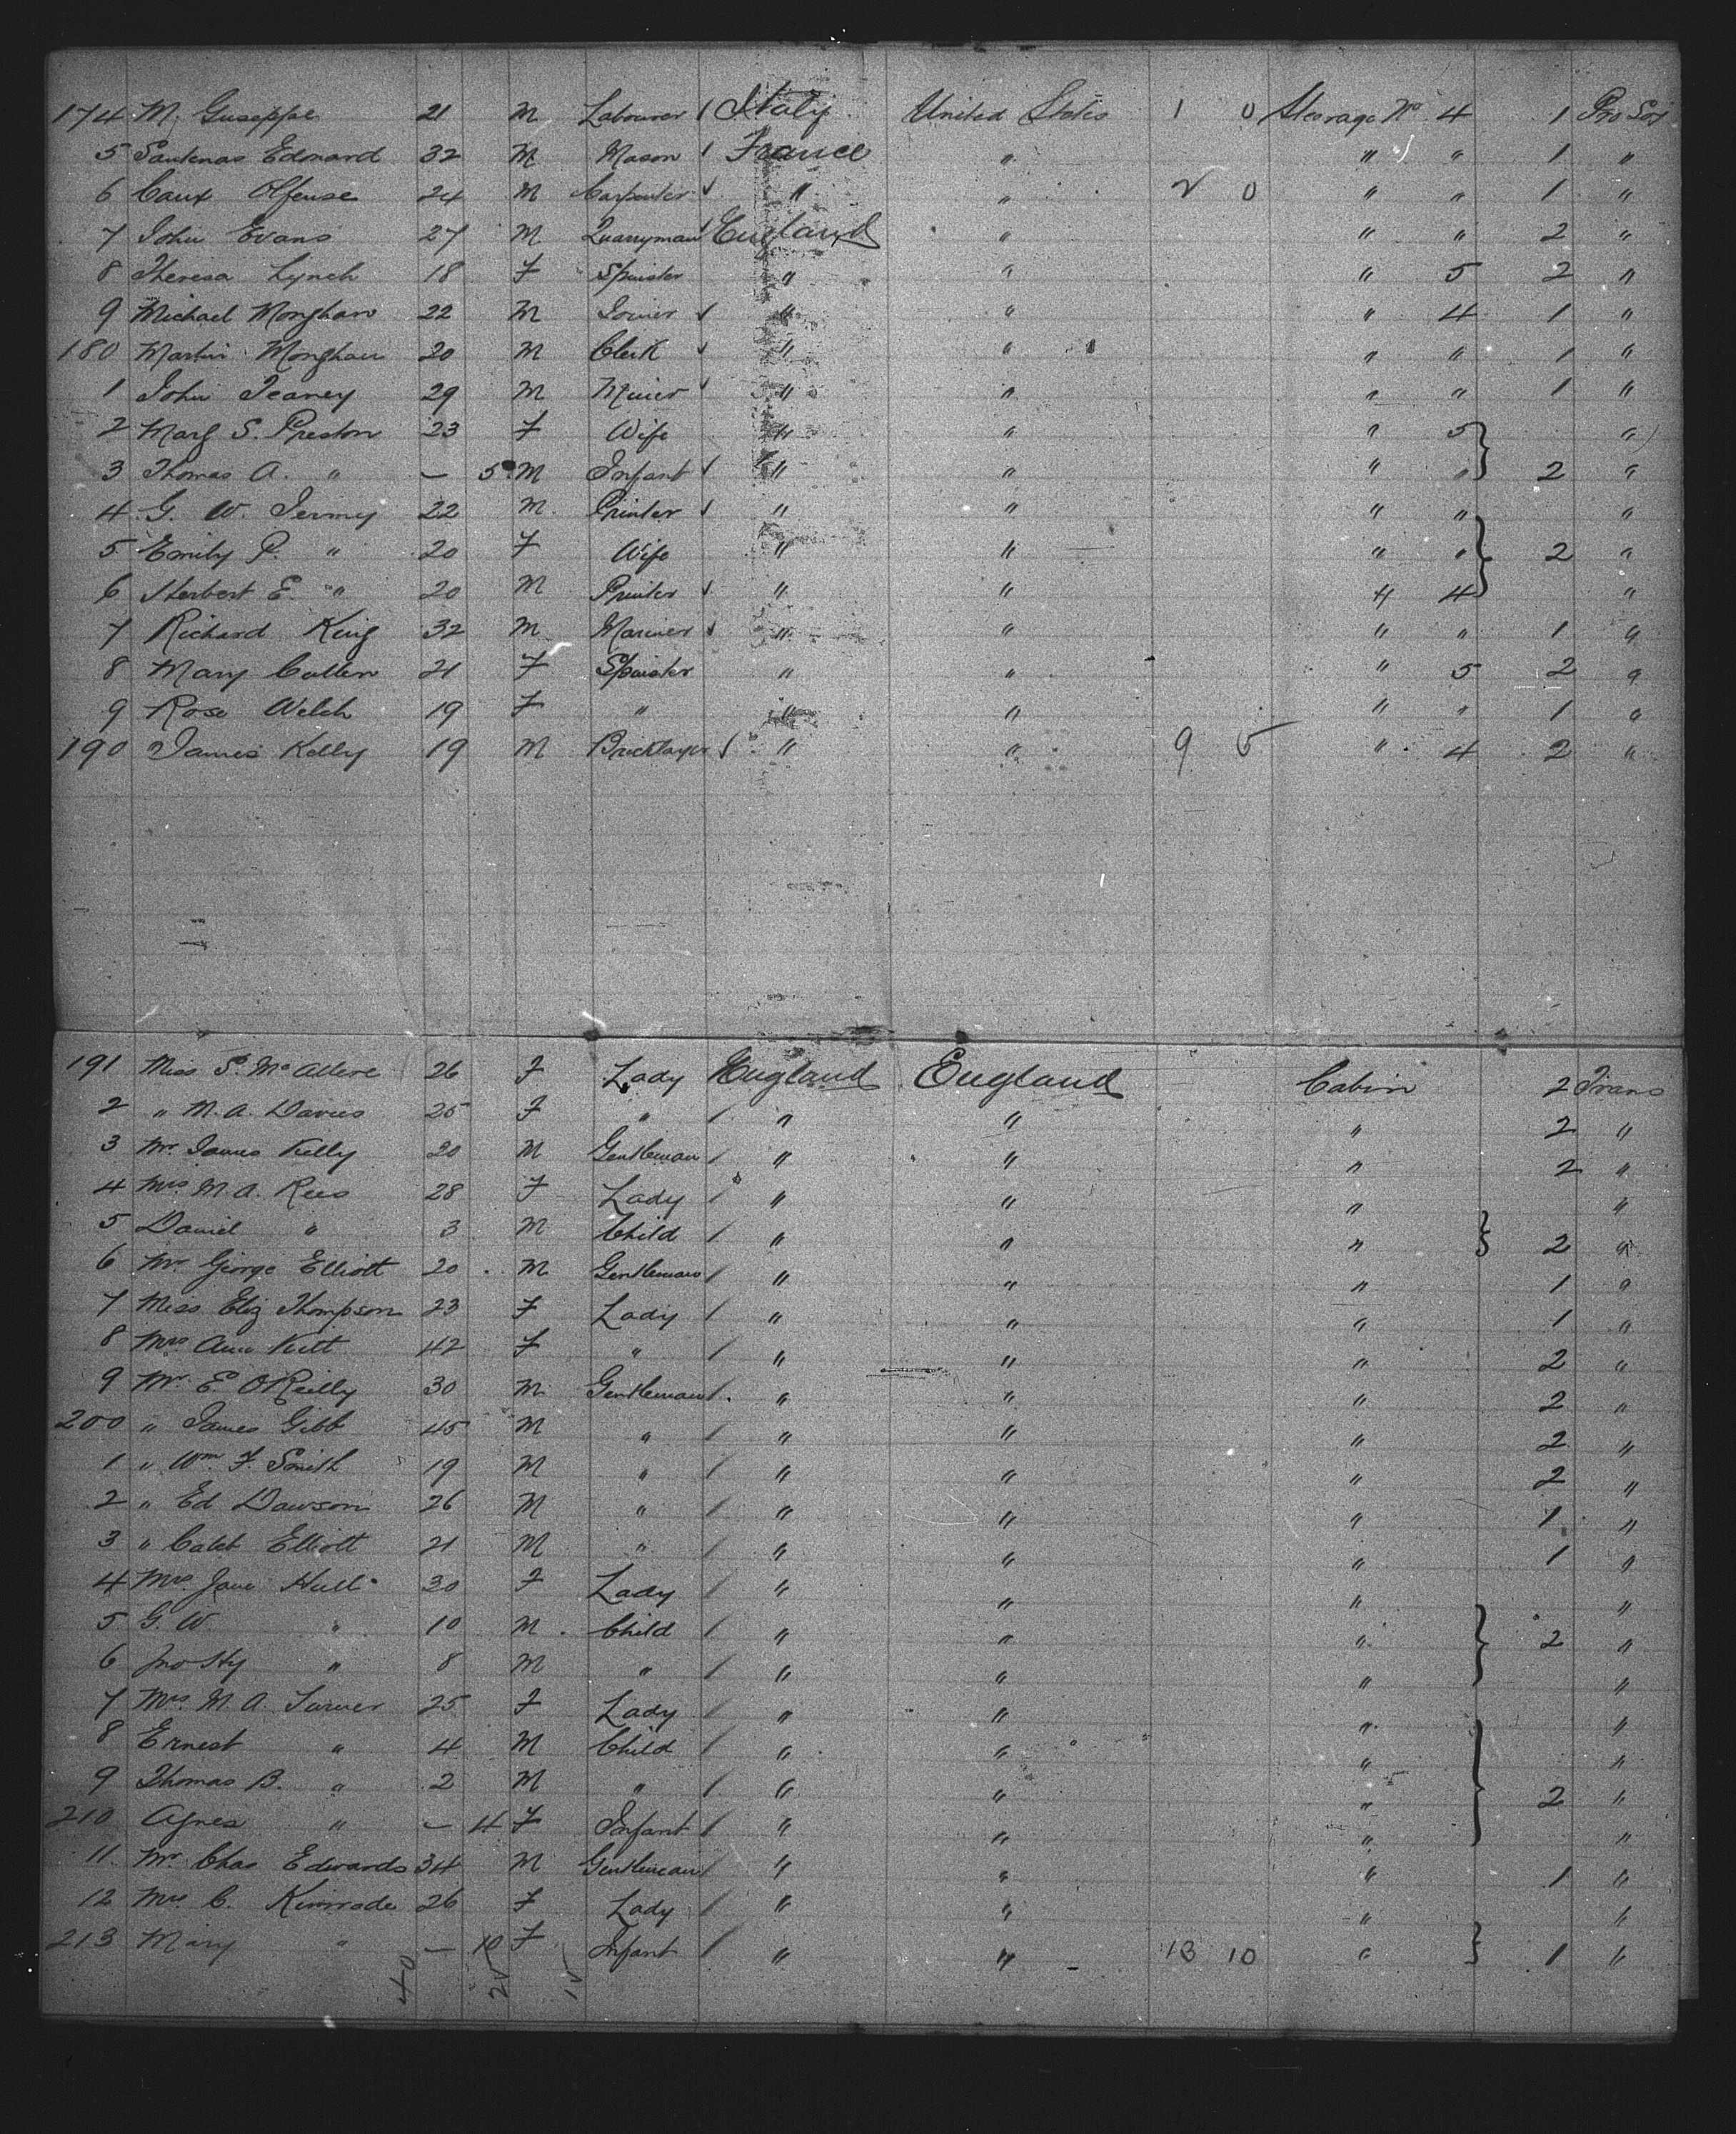 174 M. Guseppe 21 M Labourer Italy United States 1 0 Steerage No 4 1 Pro Soj
5 Santenas Edmard 32 M Mason France " " " 1 "
6 Caux Olfense 24 M Carpenter " " 2 0 " " 1 "
7 John Evans 27 M Quarryman England " " " 2 "
8 Theresa Lynch 18 F Spinster " " " 5 2 "
9 Michael Monghan 22 M Joiner " " " 4 1 "
180 Martin Monghan 20 M Clerk " " " " 1 "
1 John Teaney 29 M Miner " " " " 1 "
2 Marg S. Preston 23 F Wife " " " 5 "
3 Thomas A. " — 5 M Infant " " " " 2 "
4 G. W. Jermy 22 M. Printer " " " " "
5 Emily P. " 20 F Wife " " " " 2 "
6 Herbert E. " 20 M Printer " " " 4 "
7 Richard King 32 M Mariner " " " " 1 "
8 Mary Cullen 21 F Spinster " " " 5 2 "
9 Rose Welch 19 F " " " " " 1 "
190 James Kelly 19 M Bricklayer " " 9 5 " 4 2 "
191 Miss S. McAllere 26 F Lady England England Cabin 2 Trans
2 " M. A. Davies 25 F " " " " 2 "
3 Mr James Kelly 20 M Gentleman " " " 2 "
4 Mrs M. A. Rees 28 F Lady " " " "
5 Daniel " 3 M Child " " " 2 "
6 Mr George Elliott 20 M Gentleman " " " 1 "
7 Miss Eliz Thompson 23 F Lady " " " 1 "
8 Mrs Ann Kitt 42 F " " " " 2 "
9 Mr E. O'Reilly 30 M Gentleman " " " 2 "
200 " James Gibb 45 M " " " " 2 "
1 " Wm F. Smith 19 M " " " " 2 "
2 " Ed Dawson 26 M " " " " 1 "
3 " Caleb Elliott 21 M " " " " 1 "
4 Mrs Jane Hull 30 F Lady " " " "
5 G. W. " 10 M Child " " " 2 "
6 Jno Hy " 8 M " " " " "
7 Mrs M. A. Turner 25 F Lady " " " "
8 Ernest " 4 M Child " " " "
9 Thomas B. " 2 M " " " " 2 "
210 Agnes " — 4 F Infant " " " "
11 Mr Chas Edwards 34 M Gentleman " " " 1 "
12 Mrs C. Kinrade 26 F Lady " " " "
213 Mary " — 10 F Infant " " 13 10 " 1 "
40 25 15